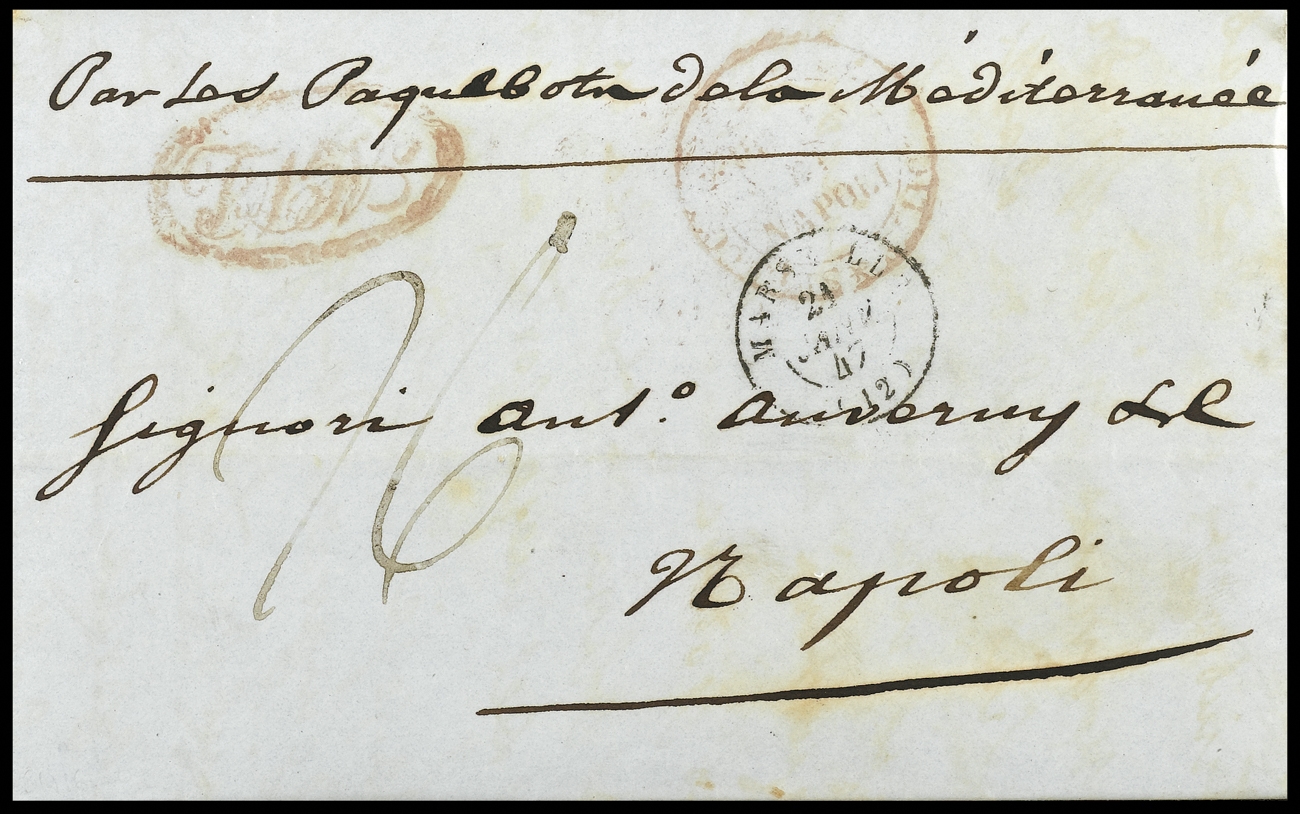 Par Les Paquebots de la Méditerranée
NAPOLI
MARSEILLE
21
JANV.
47
(12)
Signori Ant.º Auverny & C
Napoli